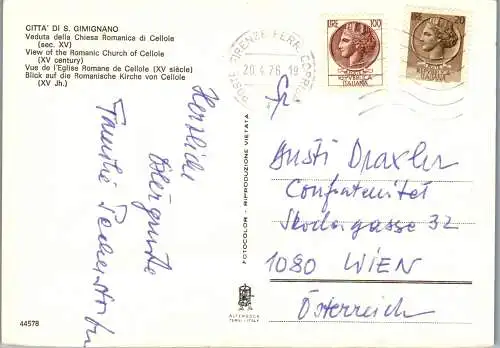 CITTA' DI S. GIMIGNANO
Veduta della Chiesa Romanica di Cellole
(sec. XV)
View of the Romanic Church of Cellole
(XV century)
Vue de l'Eglise Romane de Cellole (XV siècle)
Blick auf die Romanische Kirche von Cellole
(XV Jh.)
Herzliche
Ostergrüße
Familie
44578
FOTOCOLOR - RIPRODUZIONE VIETATA
ALTEROCCA
TERNI - ITALY
POSTE FIRENZE FERR.
20.4.76
LIRE 100
REPVBBLICA
ITALIANA
LIRE 20
Gusti Draxler
Confraternitet
Skodagasse 32
1080 WIEN
Österreich